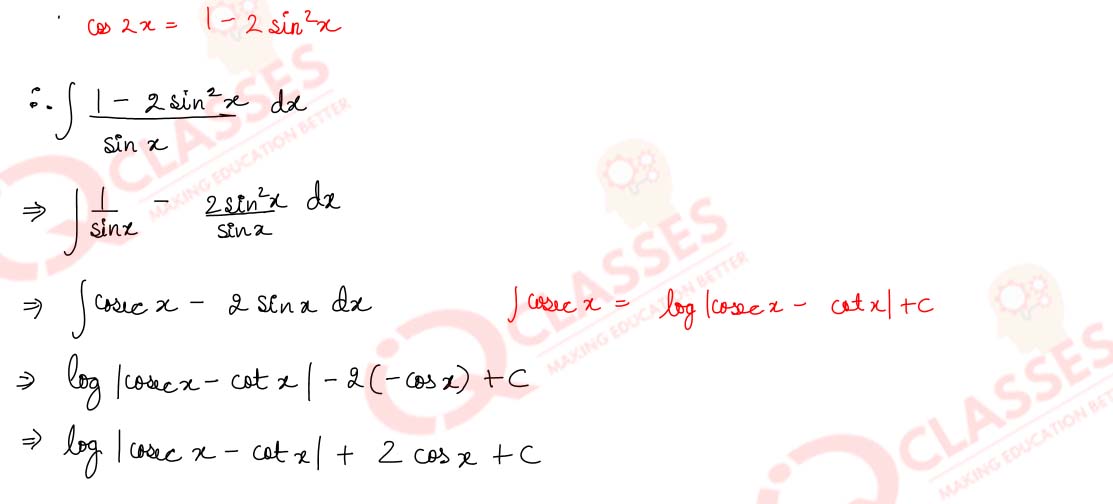 cos 2x = 1 - 2 sin²x
∴ ∫ (1 - 2 sin²x)/(sin x) dx
⇒ ∫ 1/(sin x) - (2 sin²x)/(sin x) dx
⇒ ∫ cosec x - 2 sin x dx ∫ cosec x = log |cosec x - cot x| + C
⇒ log |cosec x - cot x| - 2(-cos x) + C
⇒ log |cosec x - cot x| + 2 cos x + C
CLASSES
MAKING EDUCATION BETTER
CLASSES
MAKING EDUCATION BETTER
CLASSES
MAKING EDUCATION BET